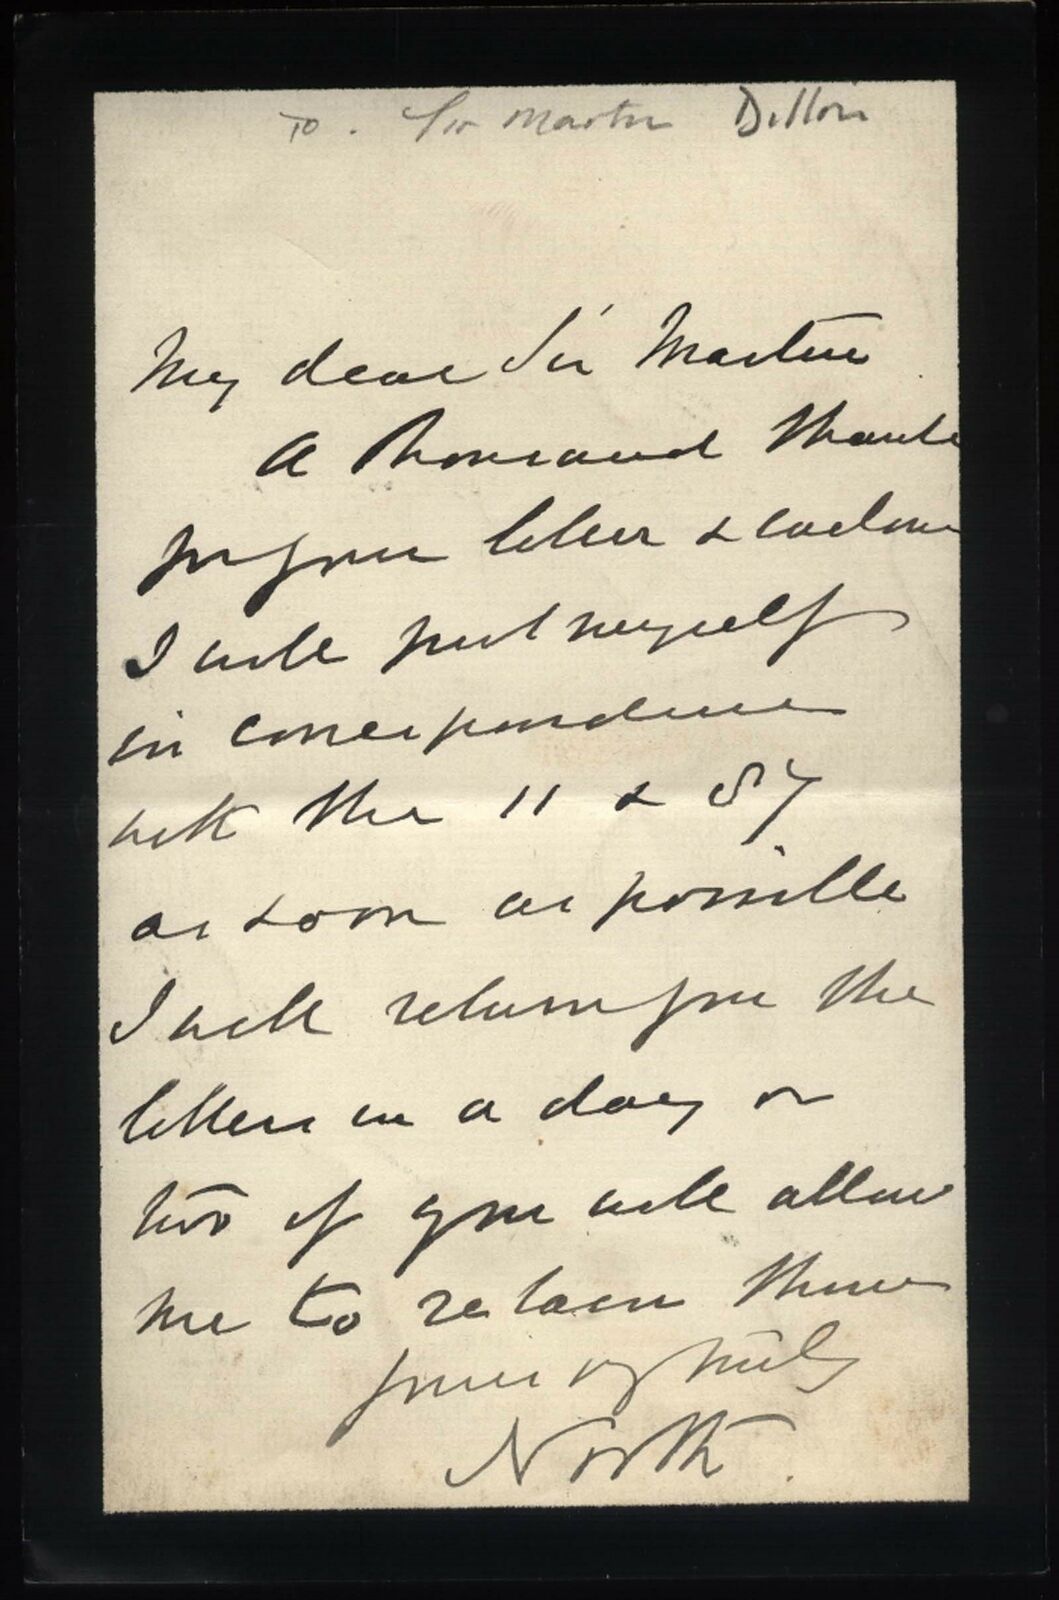 To. Sir Martin Dillon
My dear Sir Martin
A thousand thanks
for your letter & enclosure
I will put myself
in correspondence
with the 11 & 87
as soon as possible
I will return you the
letters in a day or
two if you will allow
me to retain them
yours truly
North.